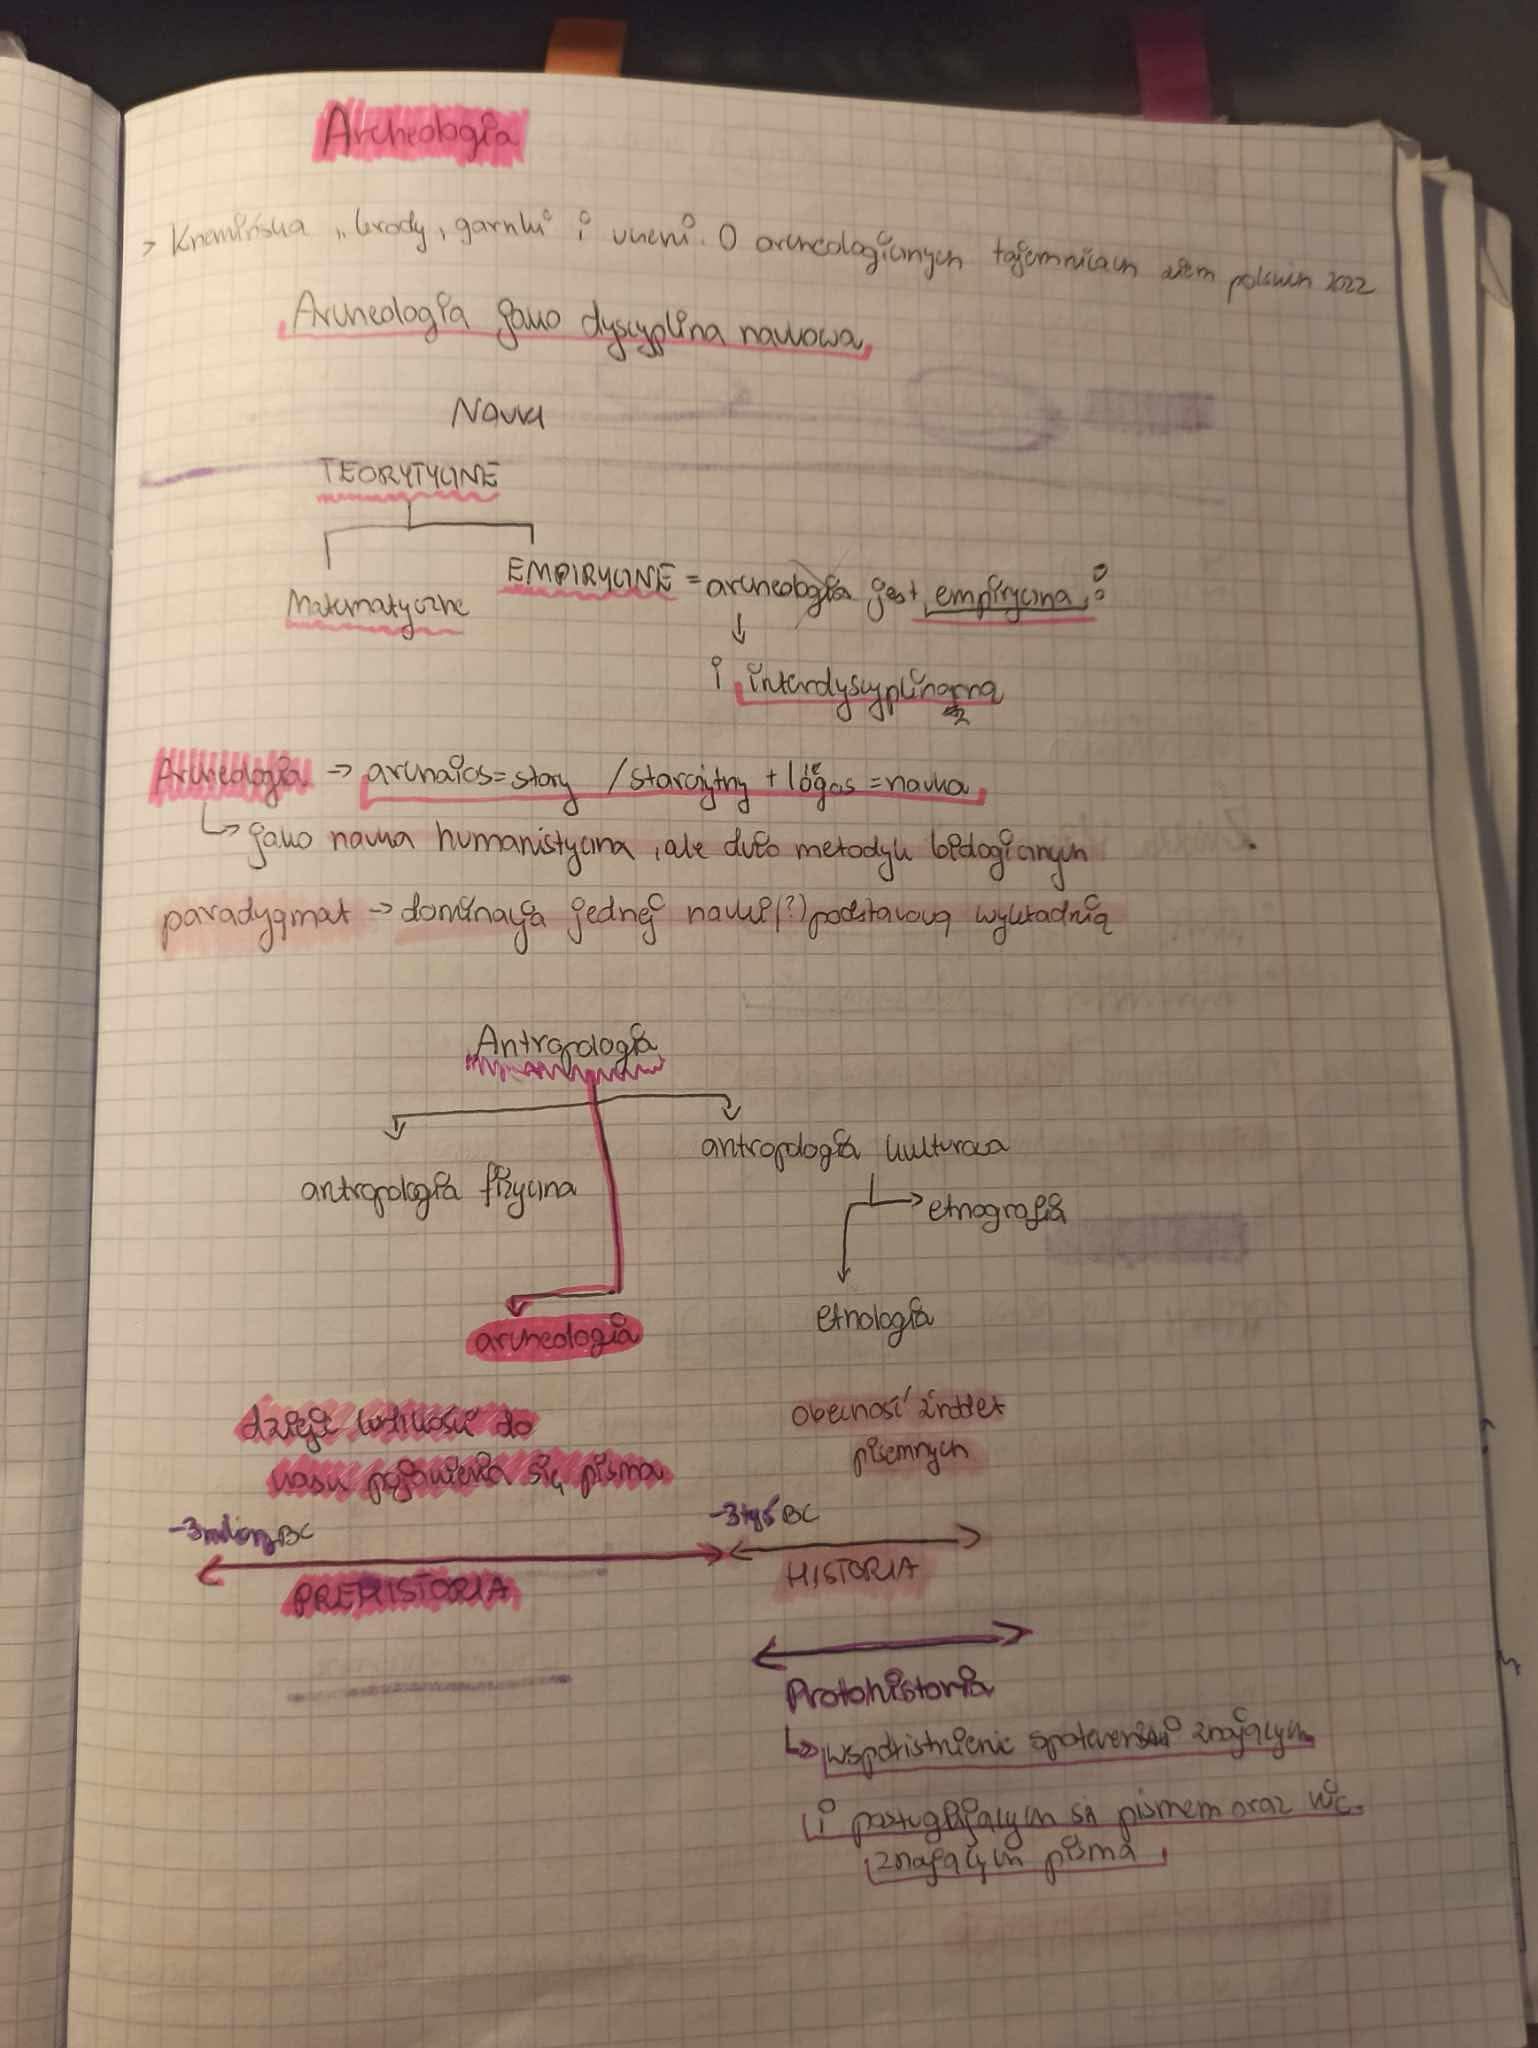 Archeologia
> "Grody, garnki i uczeni. O archeologicznych tajemnicach ziem polskich 2022
Archeologia jako dyscyplina naukowa
Nauki
TEORYTYCZNE
EMPIRYCZNE = archeologia jest empiryczna i
Matematyczne
↓
i interdyscyplinarna
Archeologia → archaios = stary / starożytny + lógos = nauka
↳ jako nauka humanistyczna, ale dużo metodyk biologicznych
paradygmat → dominacja jednej nauki (?) podstawową wykładnią
Antropologia
antropologia kulturowa
antropologia fizyczna
→ etnografia
etnologia
archeologia
dzieje ludzkości do
czasu pojawienia się pisma
obecność źródeł
pisemnych
-3 miliony BC
-3 tyś BC
PREHISTORIA
HISTORIA
Protohistoria
↳ współistnienie społeczeństw znających
i posługujących się pismem oraz nie
znających pisma